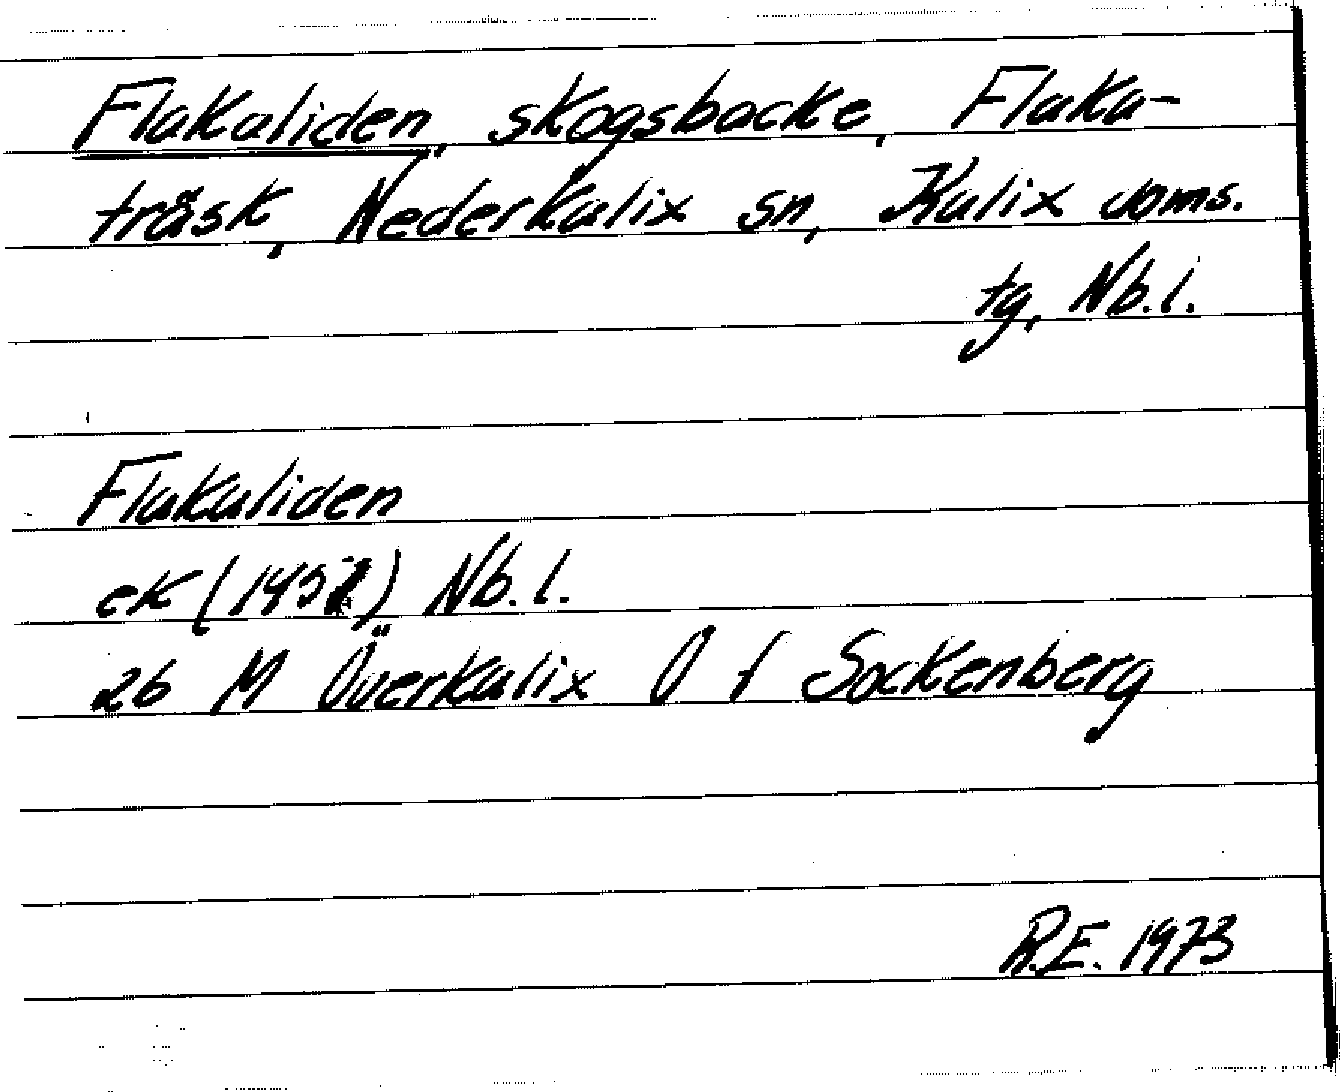 Flakaliden, skogsbacke, Flaka-
träsk, Nederkalix sn, Kalix doms.
tg, Nb.l.
Flakaliden
ek Nb.l.
26 M Överkalix O f Sockenberg
R.E. 1973